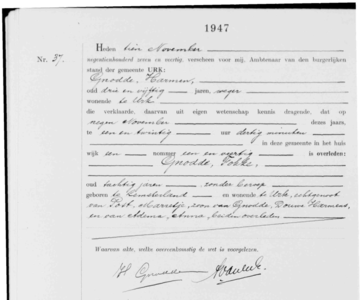 1947
Nr. 37.
Heden tien November
negentienhonderd zeven en veertig, verscheen voor mij, Ambtenaar van den burgerlijken
stand der gemeente URK:
Gnodde, Harmen,
oud drie en vijftig jaren, weger
wonende te Urk
die verklaarde, daarvan uit eigen wetenschap kennis dragende, dat op
negen November dezes jaars,
te een en twintig uur dertig minuten
in deze gemeente in het huis
wijk een nummer een en veertig is overleden:
Gnodde, Fokke,
oud tachtig jaren, zonder beroep
geboren te Lemsterland en wonende te Urk, echtgenoot
van Post, Marretje, zoon van Gnodde, Douwe Harmens,
en van Adema, beiden overleden
Waarvan akte, welke overeenkomstig de wet is voorgelezen.
H Gnodde